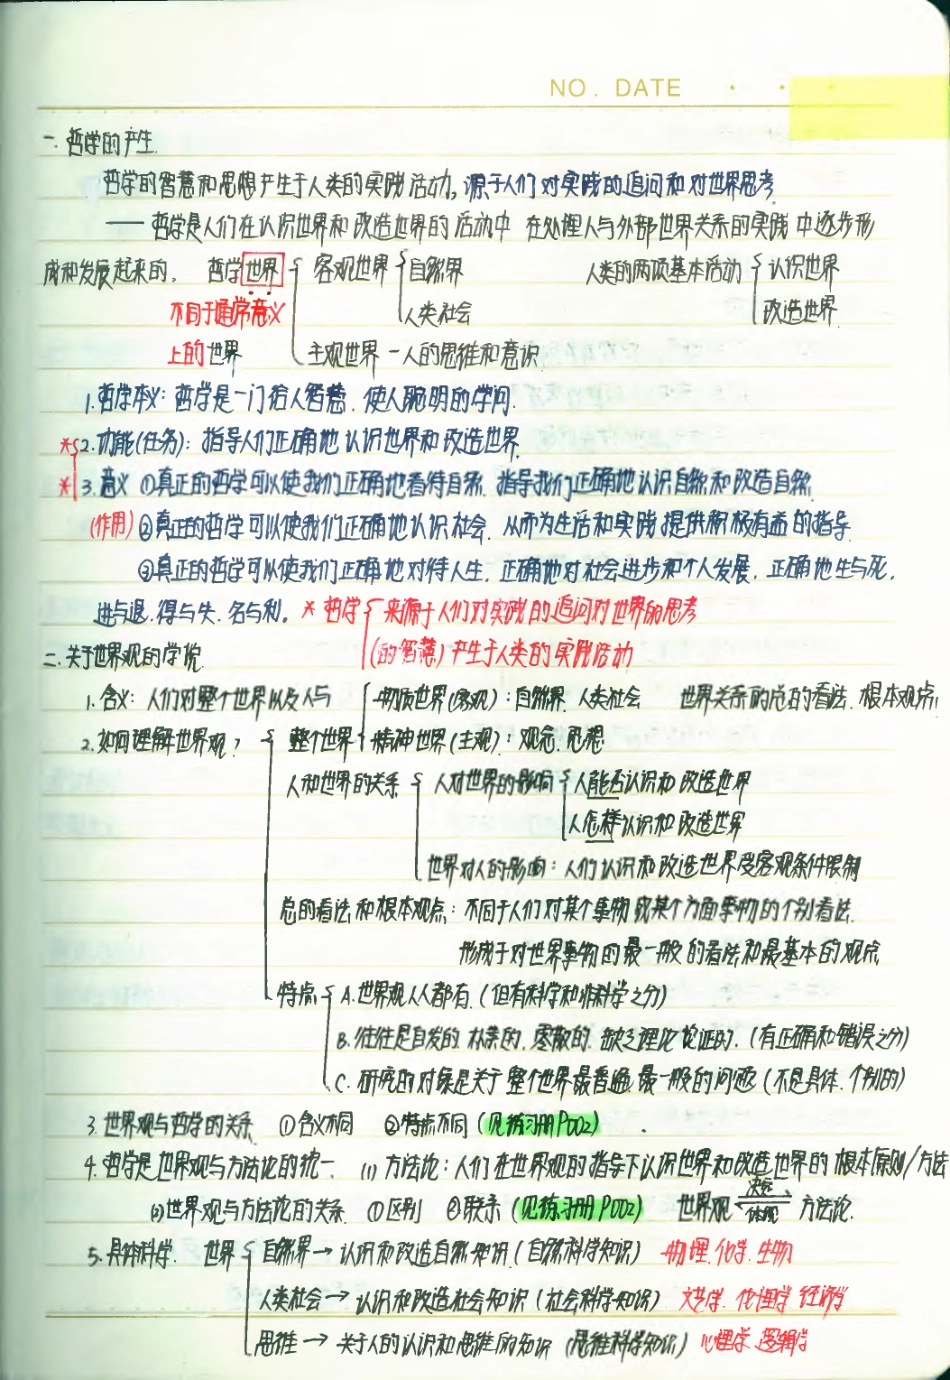 NO. DATE
一. 哲学的产生.
哲学的智慧和思想产生于人类的实践活动, 源于人们对实践的追问和对世界思考
—— 哲学是人们在认识世界和改造世界的活动中 在处理人与外部世界关系的实践中逐步形
成和发展起来的. 哲学世界 { 客观世界 { 自然界 人类的两项基本活动 { 认识世界
不同于通常意义 人类社会 改造世界
上的世界 主观世界 — 人的思维和意识
1. 哲学本义: 哲学是一门给人智慧. 使人聪明的学问.
*2. 功能(任务): 指导人们正确地认识世界和改造世界.
*3. 意义 ①真正的哲学可以使我们正确地看待自然. 指导我们正确地认识自然和改造自然
(作用) ②真正的哲学可以使我们正确地认识社会. 从而为生活和实践提供积极有益的指导
③真正的哲学可以使我们正确地对待人生. 正确地对社会进步和个人发展. 正确地生与死.
进与退. 得与失. 名与利. * 哲学 { 来源于人们对实践的追问对世界的思考
(的智慧) 产生于人类的实践活动
二. 关于世界观的学说
1. 含义: 人们对整个世界以及人与 世界关系的总的看法. 根本观点
物质世界(客观): 自然界. 人类社会
2. 如何理解世界观? { 整个世界 { 精神世界(主观): 观念. 思想
人和世界的关系 { 人对世界的影响 { 人能否认识和改造世界
人怎样认识和改造世界
世界对人的影响: 人们认识和改造世界受客观条件限制
总的看法和根本观点: 不同于人们对某个事物或某个方面事物的个别看法.
形成于对世界事物的最一般的看法和最基本的观点
特点 { A. 世界观人人都有. (但有科学和非科学之分)
B. 往往是自发的. 朴素的. 零散的. 缺乏理论论证的. (有正确和错误之分)
C. 研究的对象是关于整个世界最普遍最一般的问题 (不是具体. 个别的)
3. 世界观与哲学的关系 ①含义不同 ②特点不同 (见练习册P002)
4. 哲学是世界观与方法论的统一. (1) 方法论: 人们在世界观的指导下认识世界和改造世界的根本原则/方法
(2)世界观与方法论的关系 ①区别 ②联系 (见练习册P002) 世界观 决定 体现 方法论.
5. 具体科学. 世界 { 自然界 → 认识和改造自然知识. (自然科学知识) 物理. 化学. 生物
人类社会 → 认识和改造社会知识 (社会科学知识) 文学. 伦理学. 经济学
思维 → 关于人的认识和思维的知识 (思维科学知识) 心理学. 逻辑学